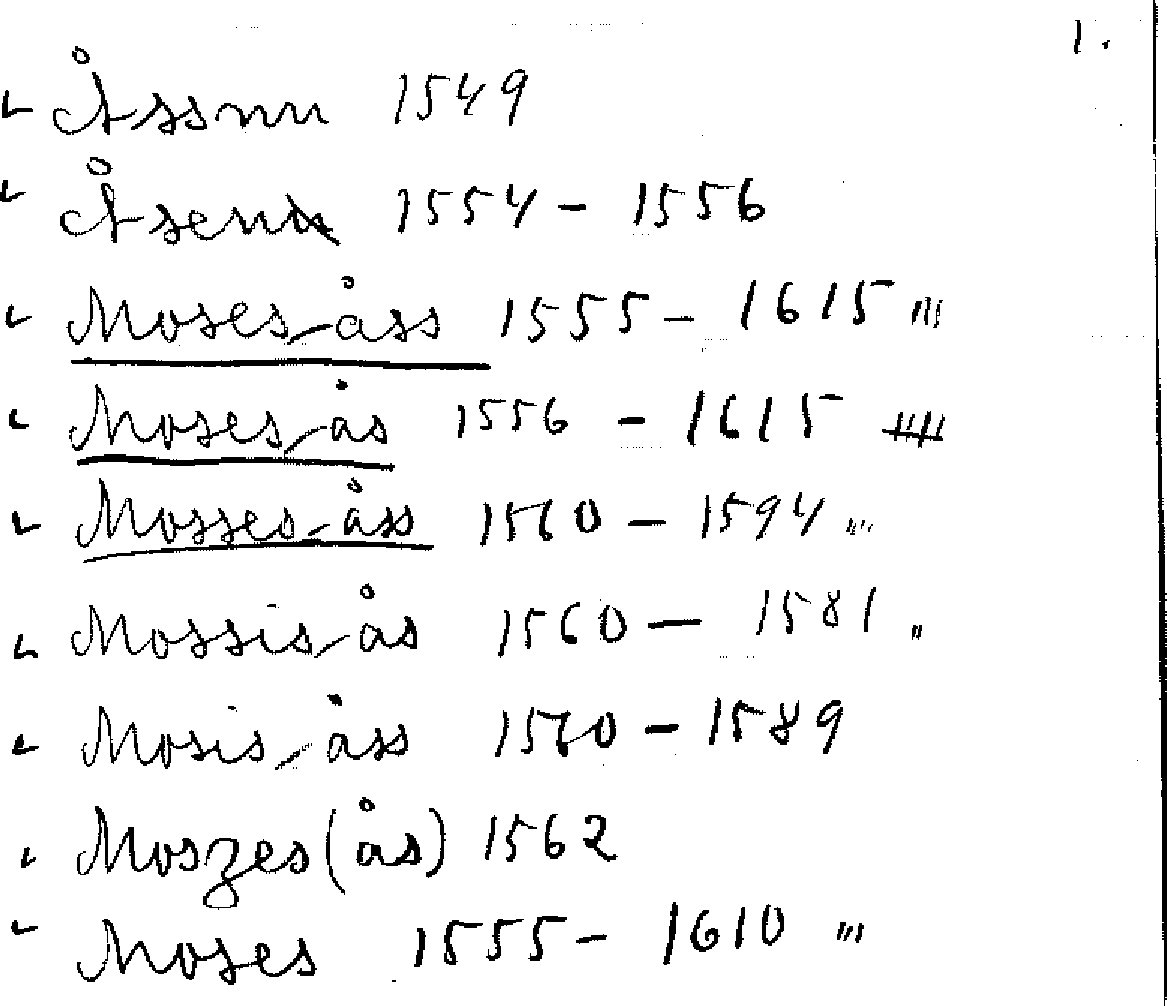 1.
Åssnu 1549
Åsenn 1554 - 1556
Moses-åss 1555 - 1615 ///
Moses-ås 1556 - 1615 ////
Mosses-åss 1560 - 1594 ///
Mossis-ås 1560 - 1581 "
Mosis-åss 1560 - 1589
Moszes(ås) 1562
Moses 1555 - 1610 ///